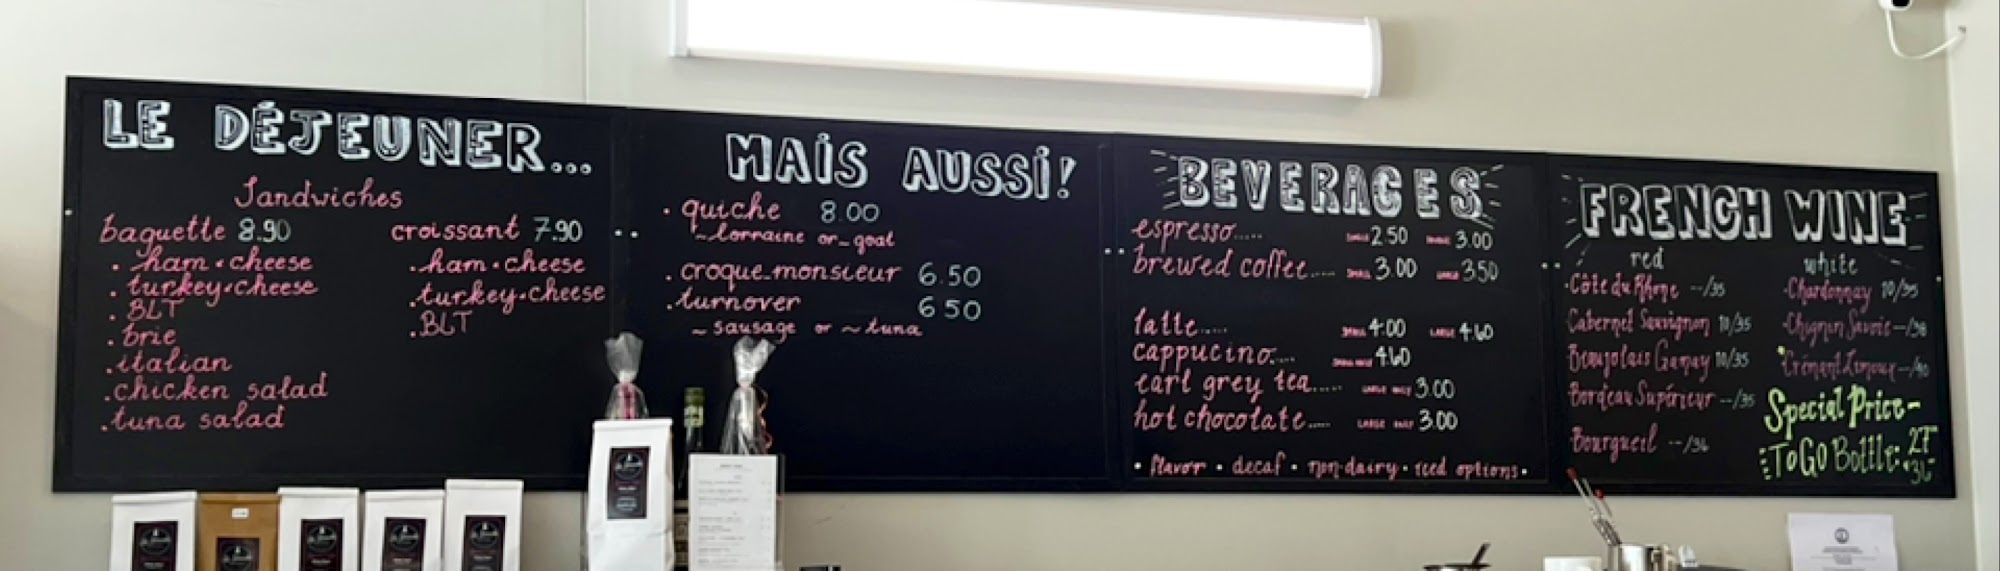 LE DÉJEUNER...
Sandwiches
baguette 8.90
· ham·cheese
· turkey·cheese
· BLT
· brie
· italian
· chicken salad
· tuna salad
croissant 7.90
· ham·cheese
· turkey·cheese
· BLT
MAIS AUSSI!
· quiche 8.00
~ lorraine or ~ goat
· croque-monsieur 6.50
· turnover 6 50
~ sausage or ~ tuna
BEVERAGES
espresso..... 2 50 3.00
brewed coffee.... SMALL 3.00 LARGE 3 50
latte..... SMALL 4.00 LARGE 4.60
cappucino.... 4.60
earl grey tea..... LARGE ONLY 3.00
hot chocolate.... LARGE ONLY 3.00
· flavor · decaf · non-dairy · iced options ·
FRENCH WINE
red
· Côte du Rhone --/35
Cabernet Sauvignon 10/35
Beaujolais Gamay 10/35
Bordeau Supérieur --/35
Bourgueil --/36
white
· Chardonnay 10/35
· Chignon Savoie --/38
Crémant Limoux --/40
Special Price -
To Go Bottle: